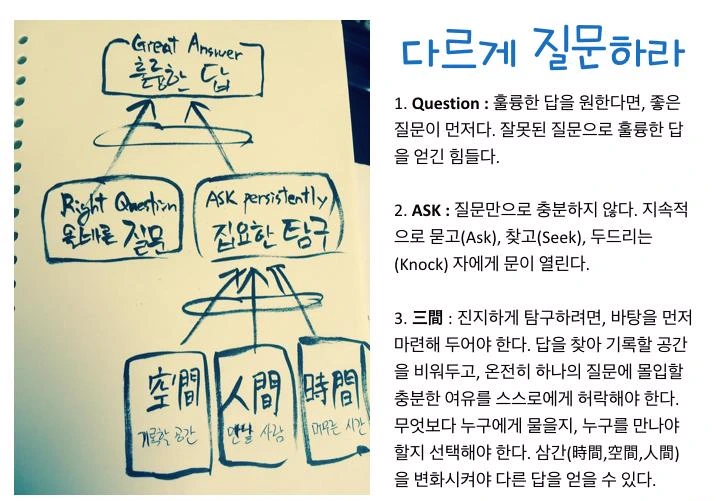 Great Answer
훌륭한 답
Right Question
올바른 질문
ASK persistently
집요한 탐구
空間
기록할 공간
人間
만날 사람
時間
머무는 시간
다르게 질문하라
1. Question : 훌륭한 답을 원한다면, 좋은
질문이 먼저다. 잘못된 질문으로 훌륭한 답
을 얻긴 힘들다.
2. ASK : 질문만으로 충분하지 않다. 지속적
으로 묻고(Ask), 찾고(Seek), 두드리는
(Knock) 자에게 문이 열린다.
3. 三間 : 진지하게 탐구하려면, 바탕을 먼저
마련해 두어야 한다. 답을 찾아 기록할 공간
을 비워두고, 온전히 하나의 질문에 몰입할
충분한 여유를 스스로에게 허락해야 한다.
무엇보다 누구에게 물을지, 누구를 만나야
할지 선택해야 한다. 삼간(時間,空間,人間)
을 변화시켜야 다른 답을 얻을 수 있다.